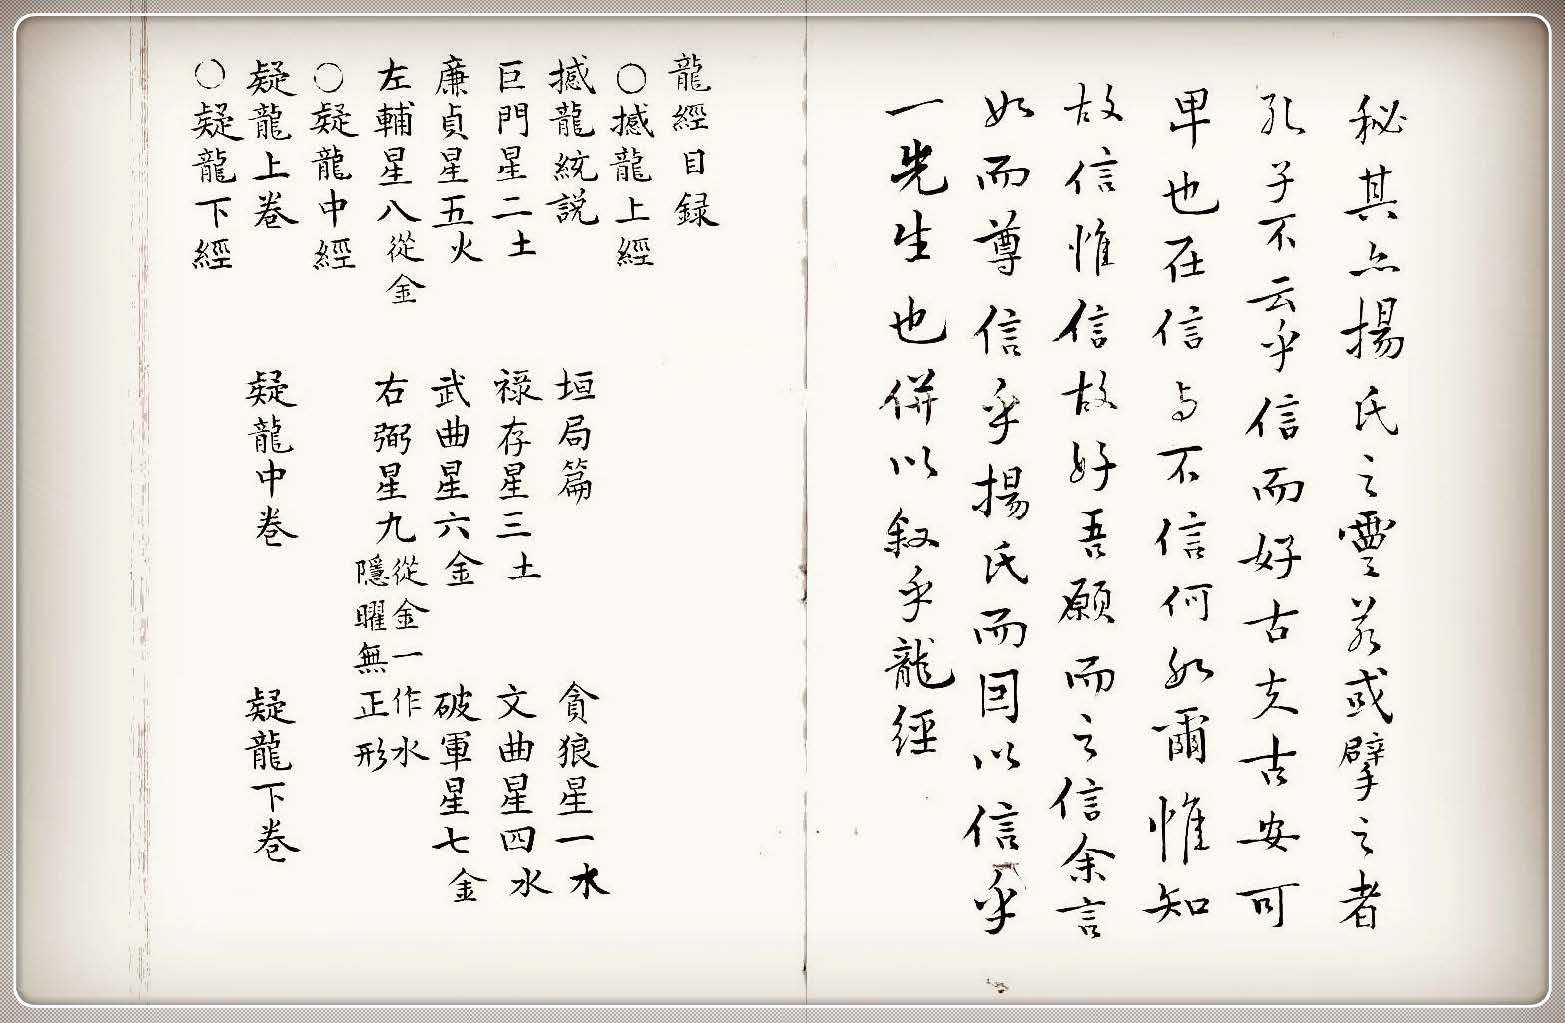 秘其亦揚氏之霊若或擘之者
孔子不云乎信而好古夫古安可
卑也在信与不信何如爾惟知
故信惟信故好吾願而之信余言
如而尊信乎揚氏而因以信乎
一先生也併以叙乎龍経
龍經目録
○撼龍上經
撼龍統説 垣局篇 貪狼星一水
巨門星二土 禄存星三土 文曲星四水
廉貞星五火 武曲星六金 破軍星七金
左輔星八從金 右弼星九從金一作水隱曜無正形
○疑龍中經
疑龍上巻 疑龍中巻 疑龍下巻
○疑龍下經